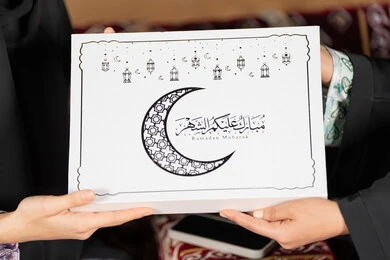 مبارك عليكم الشهر
Ramadan Mubarak